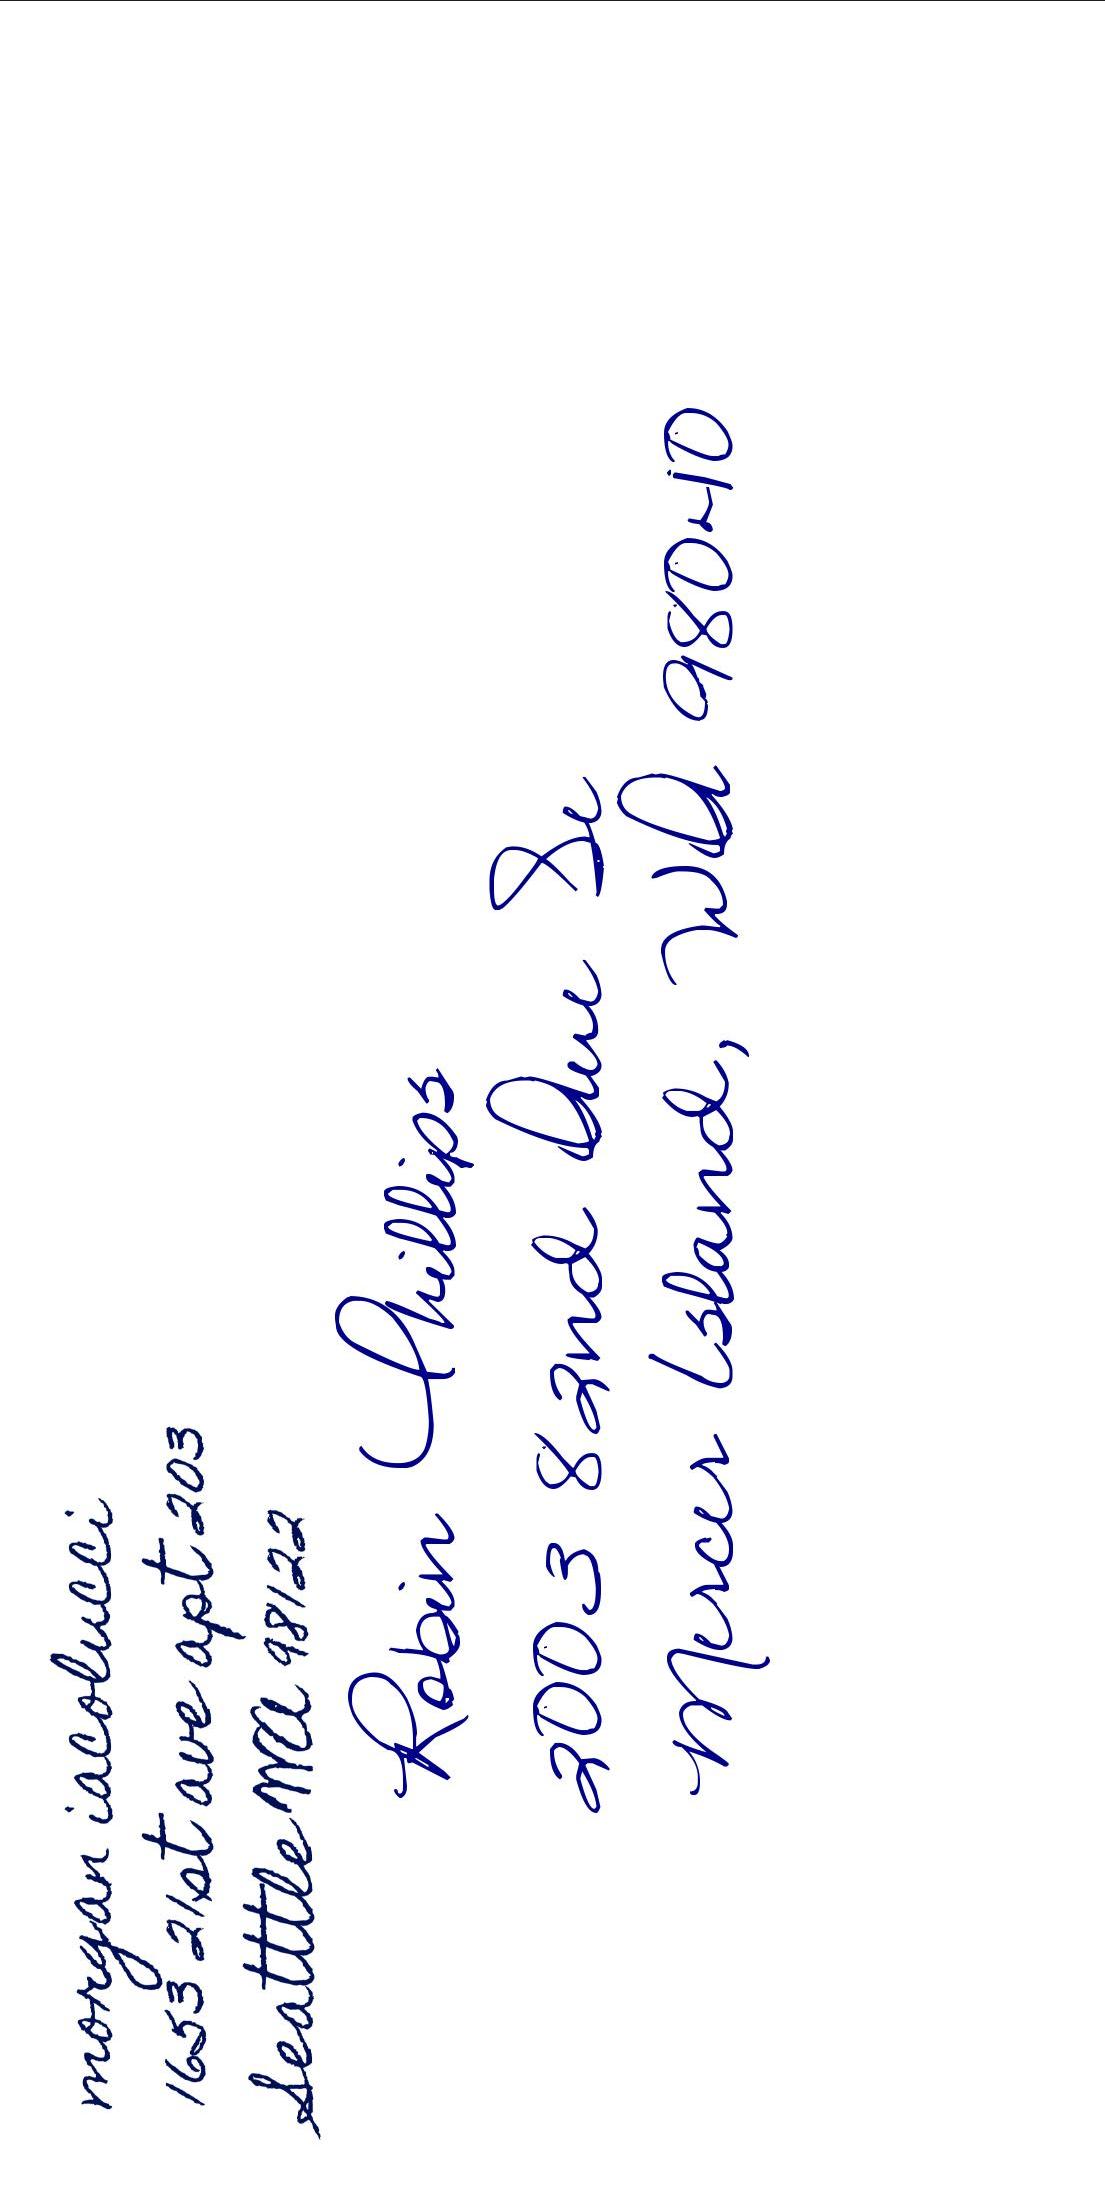 morgan iacolucci
1653 21st ave apt 203
Seatttle WA 98122
Robin Phillips
2003 82nd Ave Se
Mercer Island, WA 98040